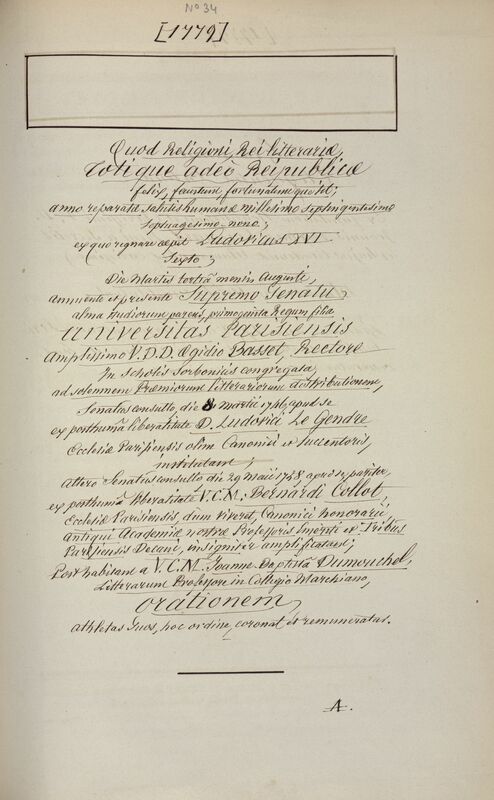 N° 34
[1779]
Quod Religioni, Rei litterariæ,
Totique adeò Reipublicæ
felix, faustum, fortunatumque sit;
anno reparatæ salutis humanæ millesimo septingentesimo
septuagesimo-nono;
ex quo regnare cæpit Ludovicus XVI
Sexto;
Die Martis tertiâ mensis Augusti,
annuente et præsente Supremo Senatu,
alma studiorum parens, primogenita Regum filia
Universitas Parisiensis
Amplissimo V.D.D. Ægidio Basset, Rectore
In Scholis Sorbonicis congregata,
ad solemnem Præmiorum litterariorum distributionem,
Senatus consulto, die 8 martii 1746, apud se
ex posthumâ liberalitate D. Ludovici Le Gendre
Ecclesiæ Parisiensis olim Canonici et Succentoris,
institutam;
altero Senatus consulto die 29 maii 1758, apud se pariter,
ex posthumâ liberalitate V.C.M. Bernardi Collot,
Ecclesiæ Parisiensis, dum viveret, Canonici honorarii,
antiqui Academiæ nostræ Professoris Emeriti et Tribus
Parisiensis Decani, insigniter amplificatam;
Post habitam a V.C.M. Joanne Baptistâ Dumouchel,
Litterarum Professore in Collegio Marchiano,
orationem,
athletas suos, hoc ordine, coronat et remuneratur.
A.